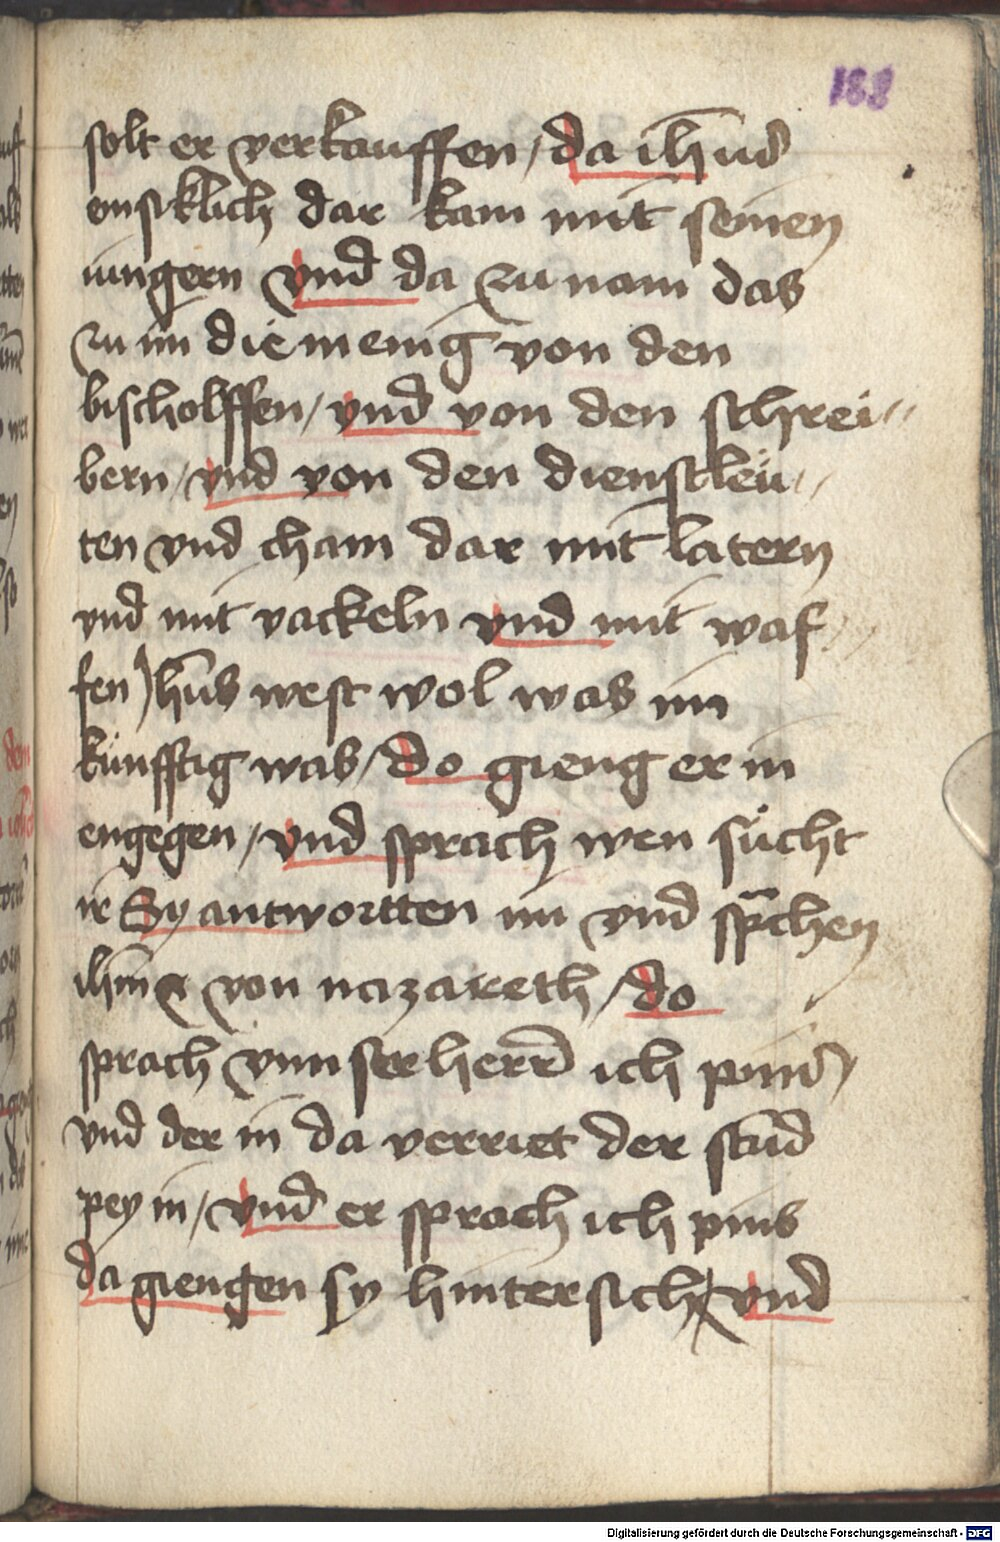 188
solt er verkauffen / da ih̄us
ensiklich dar kam mit seinen
iungern vnd da zu nam das
zu im die menig von den
bischolffen / vnd von den schrei //
bern / vnd von den dienstleü //
ten vnd cham dar mit latern
vnd mit vackeln vnd mit waf //
fen Jhūs west wol was im
künfftig was / do gieng er in
engegen / vnd sprach wen sücht
ir Sy antwortten im vnd sprchen
ihm̄ von nazareth / do
sprach vnnser herr ich pins /
vnd der in da verriet der stūd
pey in / vnd er sprach ich pins
da giengen sy hintersich / vnd
Digitalisierung gefördert durch die Deutsche Forschungsgemeinschaft - DFG